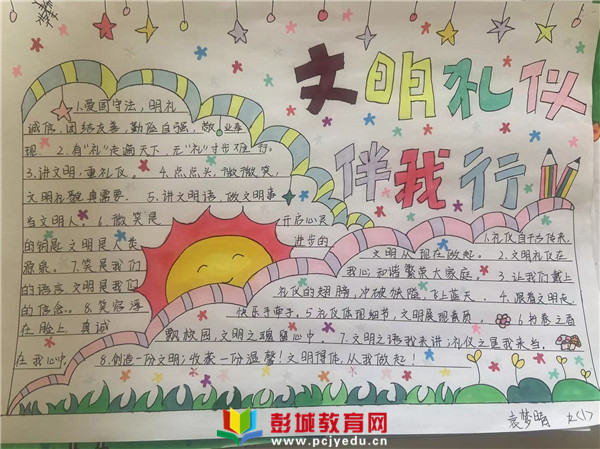 文明礼仪
伴我行
1.爱国守法,明礼
诚信,团结友善,勤俭自强,敬业奉
现. 2.有"礼"走遍天下,无"礼"寸步难行。
3.讲文明,重礼仪。 4.点点头,微微笑,
文明礼貌 需要. 5.讲文明语,做文明事
当文明人。 6.微笑是 开启心灵
的钥匙 文明是人类 进步的
源泉。 7.笑是我们
的语言 文明是我们
的信念。 8.笑容浮
在脸上 真诚
在我心中.
1.礼仪自千古传承,
文明从现在做起。 2.文明礼仪在
我心和谐繁荣大家庭。 3.让我们戴上
礼仪的翅膀,冲破 飞上蓝天. 4.跟着文明走,
快乐手牵手。5.礼仪体现细节,文明展现素质。 6.书卷之香
飘校园,文明之魂留心中. 7.文明之语我来讲,礼仪之星我来当.
8.创造一份文明,收获一份温馨!文明得体,从我做起!
袁梦晴 九(1)
彭城教育网
www.pcjyedu.cn